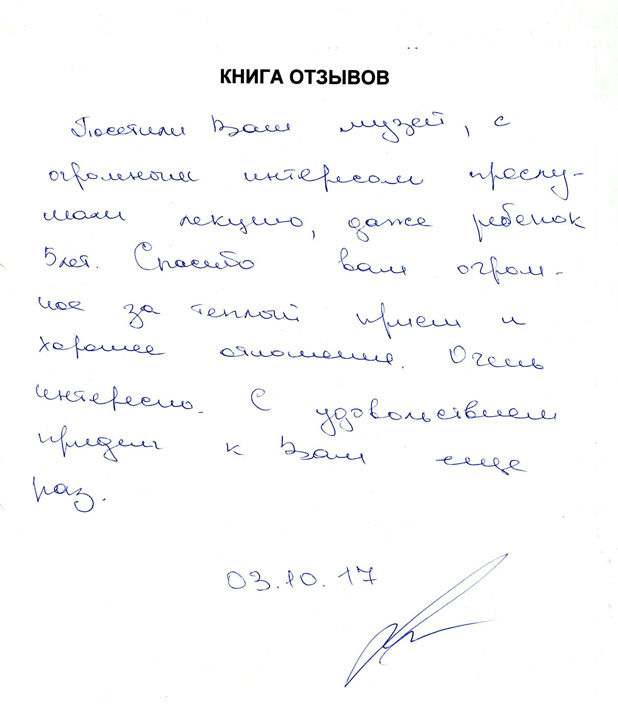 КНИГА ОТЗЫВОВ
Посетили Ваш музей, с
огромным интересом прослу-
шали лекцию, даже ребенок
5 лет. Спасибо вам огром-
ное за теплый прием и
хорошее отношение. Очень
интересно. С удовольствием
придем к Вам еще
раз.
03.10.17